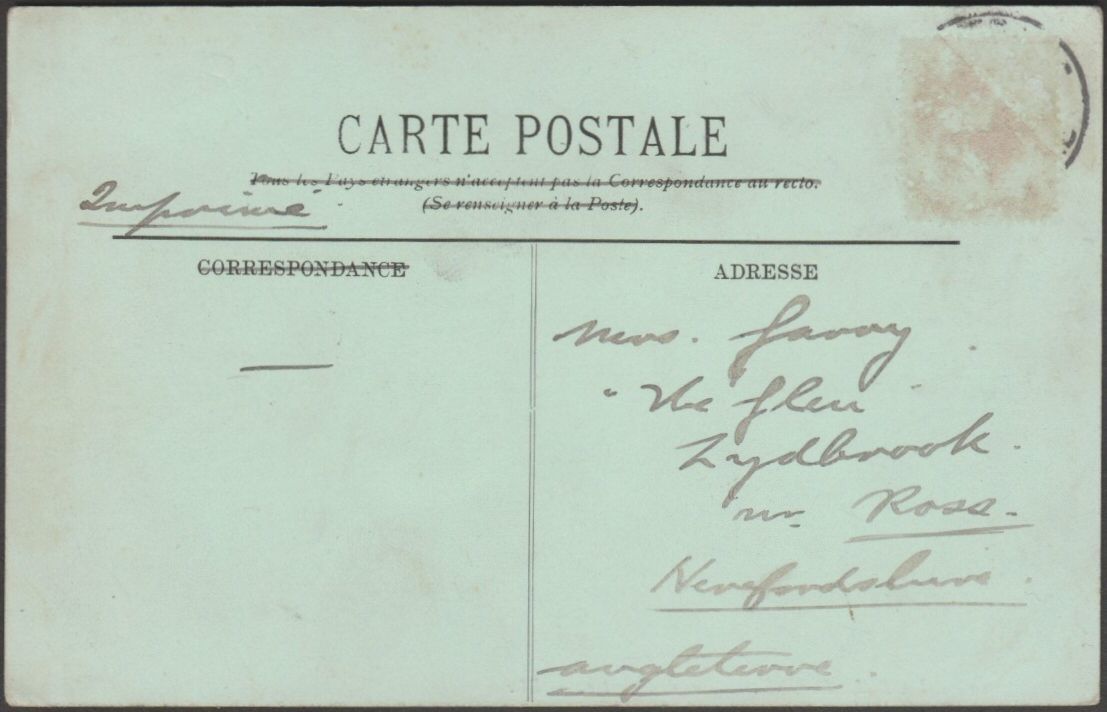 CARTE POSTALE
Tous les Pays étrangers n'acceptent pas la Correspondance au recto.
(Se renseigner à la Poste).
Imprimé
CORRESPONDANCE
ADRESSE
Mrs.
"The Glen"
Lydbrook.
nr. Ross.
Herefordshire.
Angleterre.